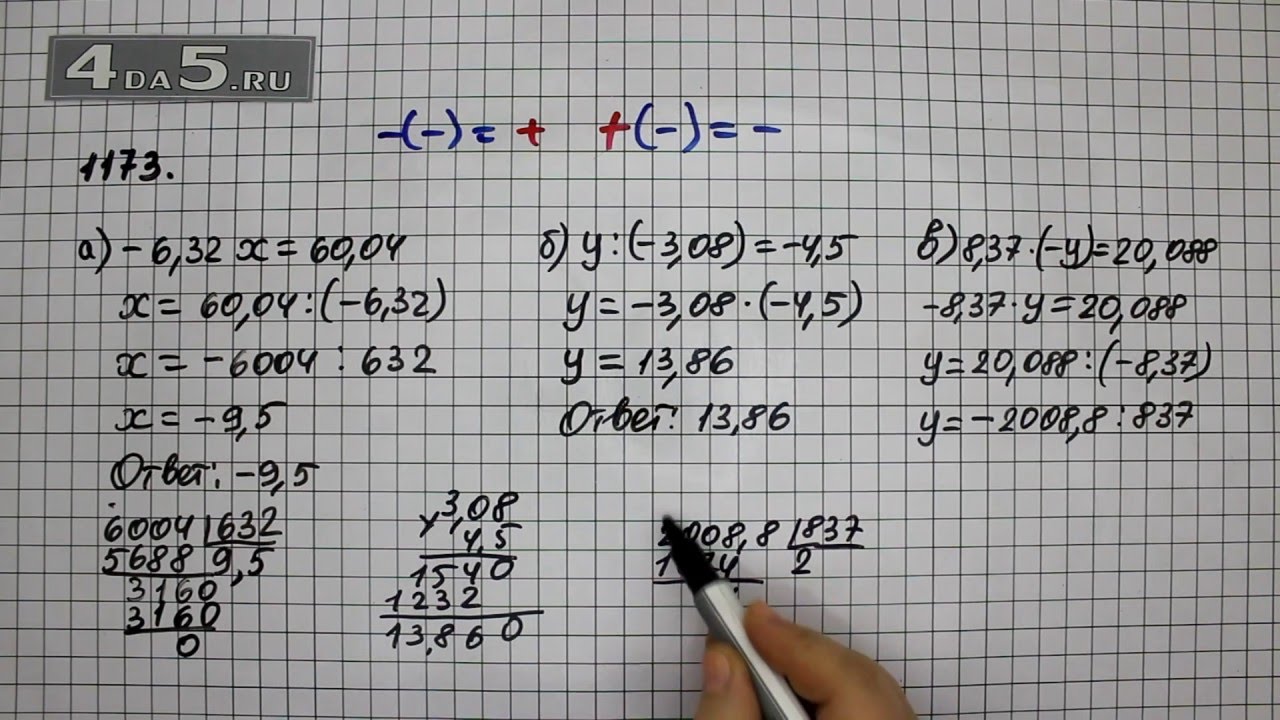 4DA5.RU
-(-) = + +(-) = -
1173.
а) -6,32 x = 60,04
x = 60,04 : (-6,32)
x = -6004 : 632
x = -9,5
Ответ: -9,5
б) y : (-3,08) = -4,5
y = -3,08 · (-4,5)
y = 13,86
Ответ: 13,86
в) 8,37 · (-y) = 20,088
-8,37 · y = 20,088
y = 20,088 : (-8,37)
y = -2008,8 : 837
6004 | 632
5688 9,5
3160
3160
0
× 3,08
4,5
1540
1232
13,860
2008,8 | 837
2